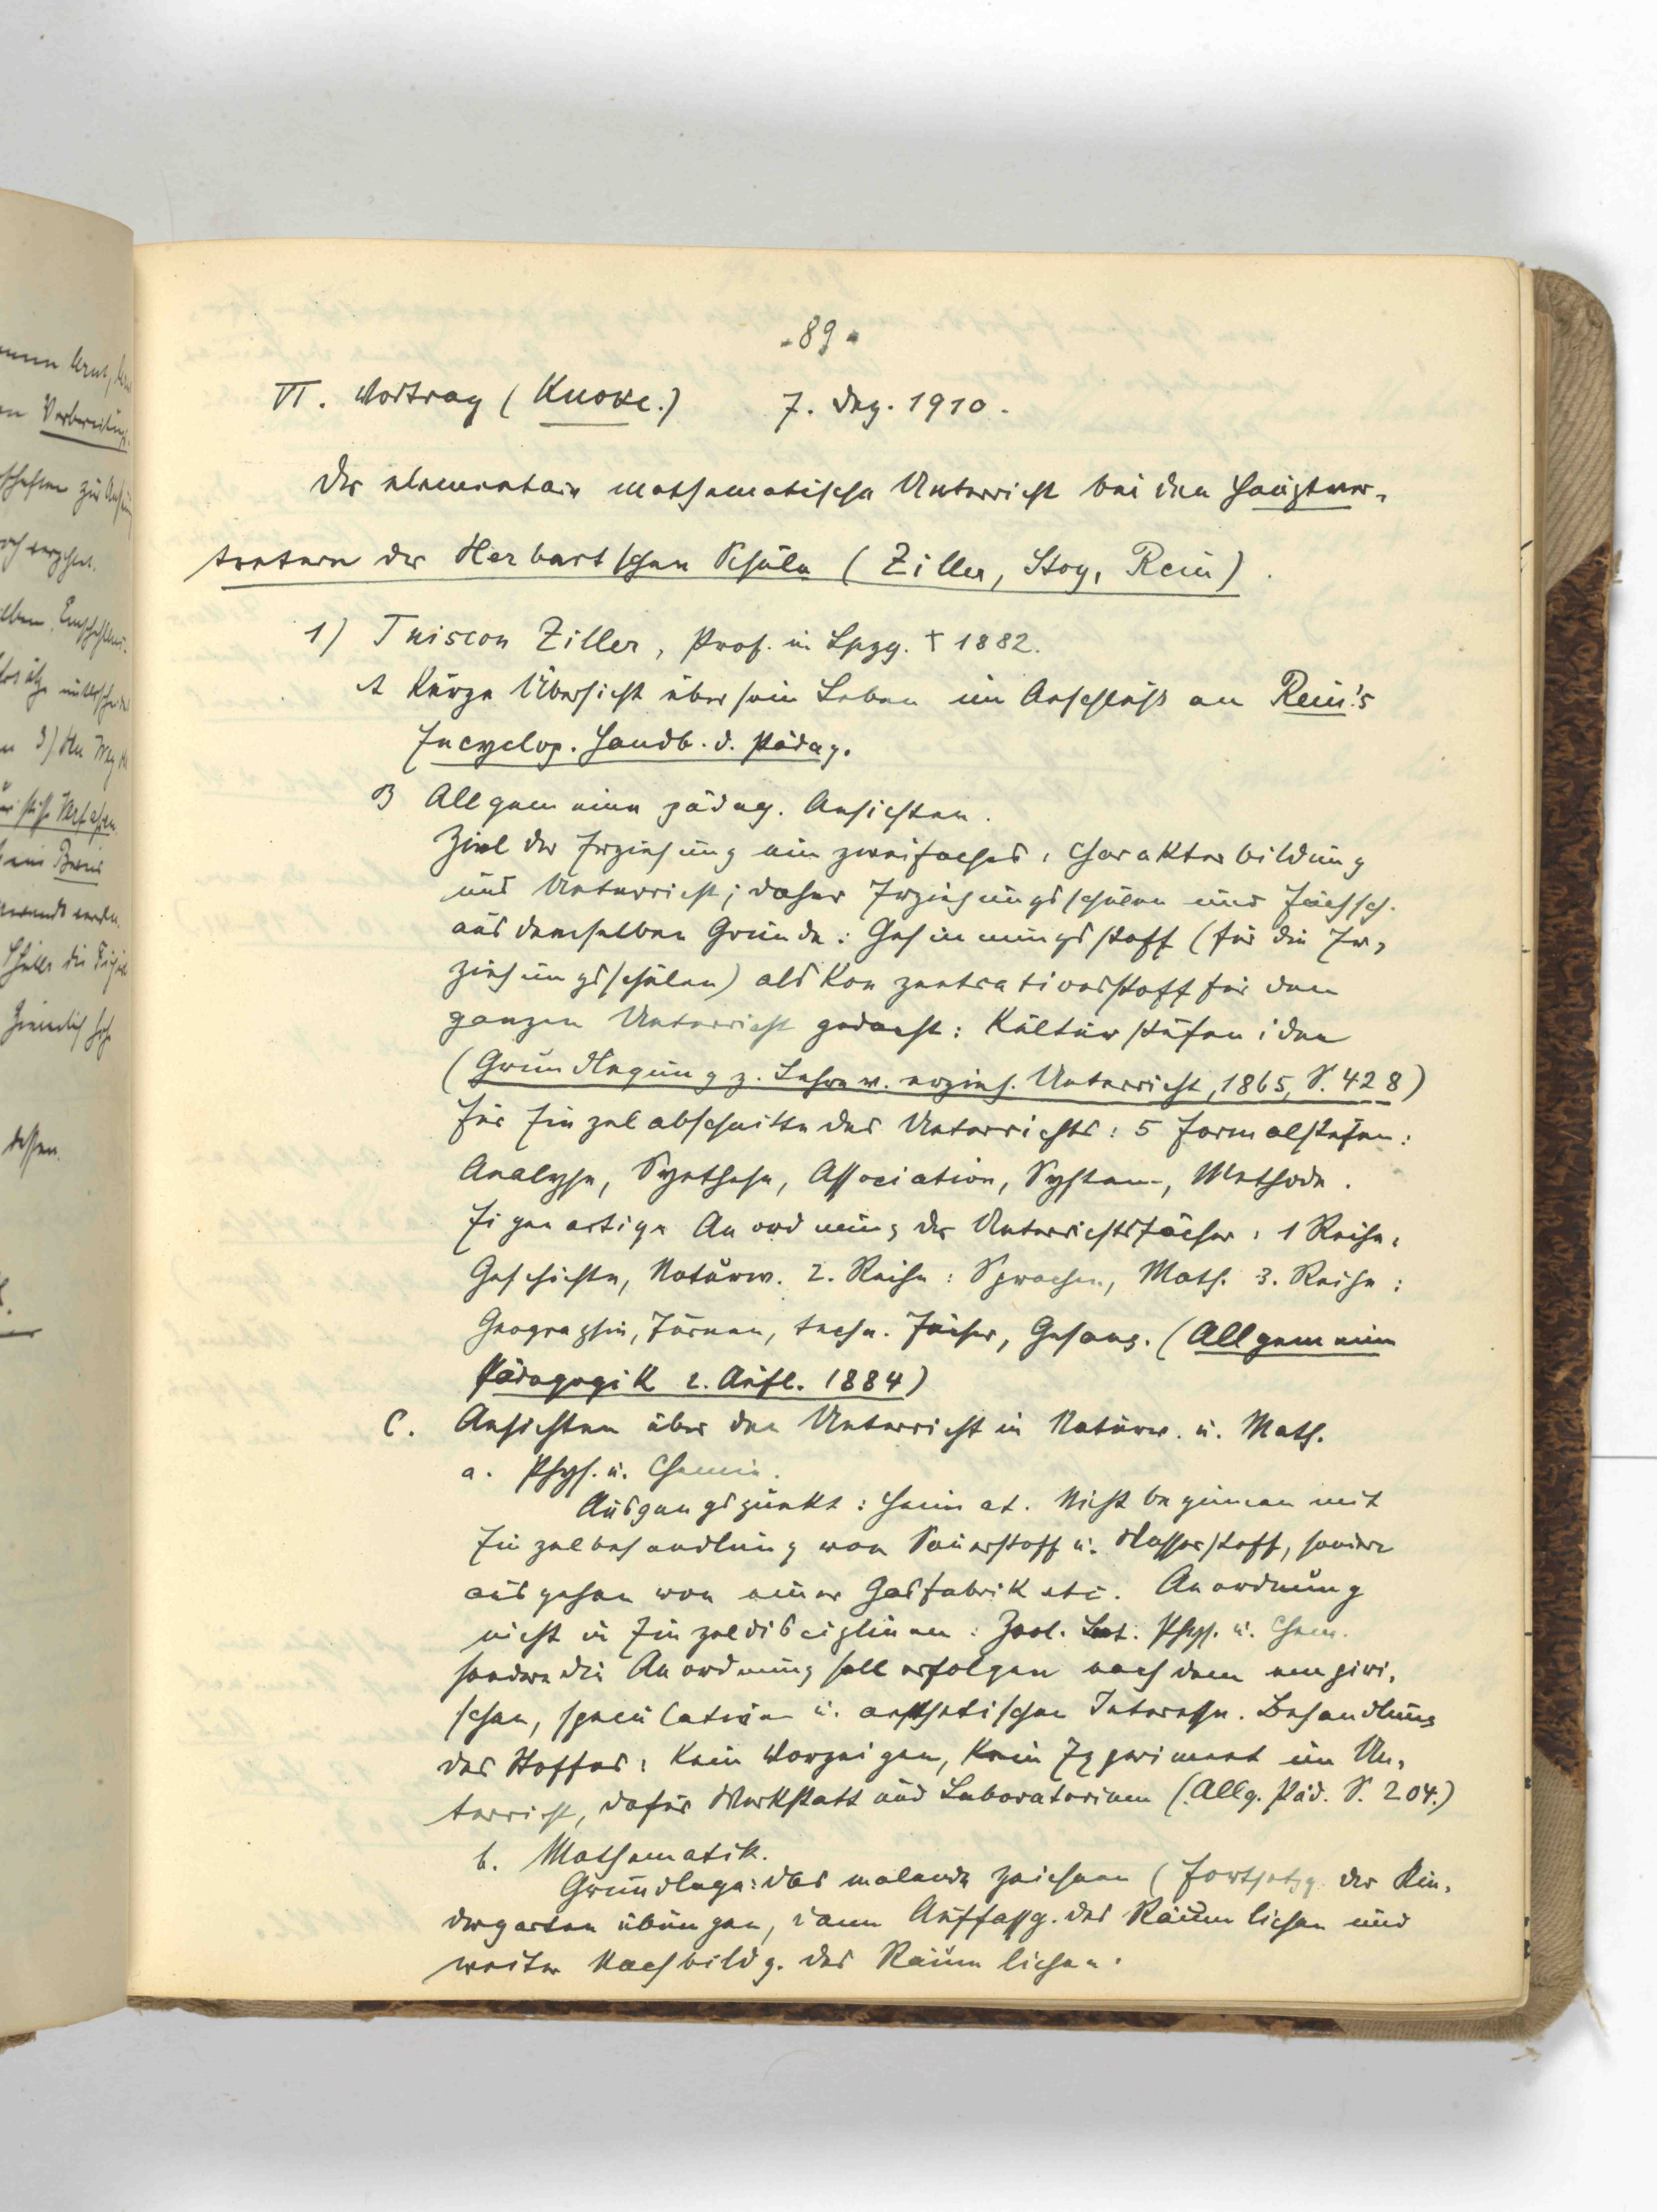 -89-
VI. Vortrag (Knoke.) 7. Dez. 1910.
Der elementare mathematische Unterricht bei den Hauptver-
tretern der Herbartschen Schule (Ziller, Stoy, Rein).
1) Tuiscon Ziller, Prof. in Lpzg. † 1882.
A Kurze Übersicht über sein Leben im Anschluß an Rein's
Encyclop. Handb. d. Pädag.
B Allgemeine pädag. Ansichten.
Ziel der Erziehung ein zweifaches: Charakterbildung
und Unterricht; daher Erziehungsschulen und Fachsch.
aus demselben Grunde: Gesinnungsstoff (für die Er-
ziehungsschulen) als Konzentrationsstoff für den
ganzen Unterricht gedacht: Kulturstufenidee
(Grundlegung z. Lehre v. erzieh. Unterricht, 1865, S. 428)
für Einzelabschnitte des Unterrichts: 5 Formalstufen:
Analyse, Synthese, Association, System, Methode.
Eigenartige Anordnung der Unterrichtsfächer: 1 Reihe:
Geschichte, Naturw. 2. Reihe: Sprachen, Math. 3. Reihe:
Geographie, Turnen, techn. Fächer, Gesang. (Allgemeine
Pädagogik 2. Aufl. 1884)
C. Ansichten über den Unterricht in Naturw. u. Math.
a. Phys. u. Chemie.
Ausgangspunkt: Heimat. Nicht beginnen mit
Einzelbehandlung von Sauerstoff u. Wasserstoff, sondern
ausgehen von einer Gasfabrik etc. Anordnung
nicht in Einzeldisciplinen: Zool. Bot. Phys. u. Chem.
sondern die Anordnung soll erfolgen nach dem empiri-
schen, speculativen u. aesthetischen Interesse. Behandlung
des Stoffes: Kein Vorzeigen, kein Experiment im Un-
terricht, dafür Werkstatt und Laboratorium (Allg. Päd. S. 204.)
b. Mathematik.
Grundlage: das malende Zeichnen (Fortsetzg. der Kin-
dergartenübungen, dann Auffassg. des Räumlichen und
weiter Nachbildg. des Räumlichen.